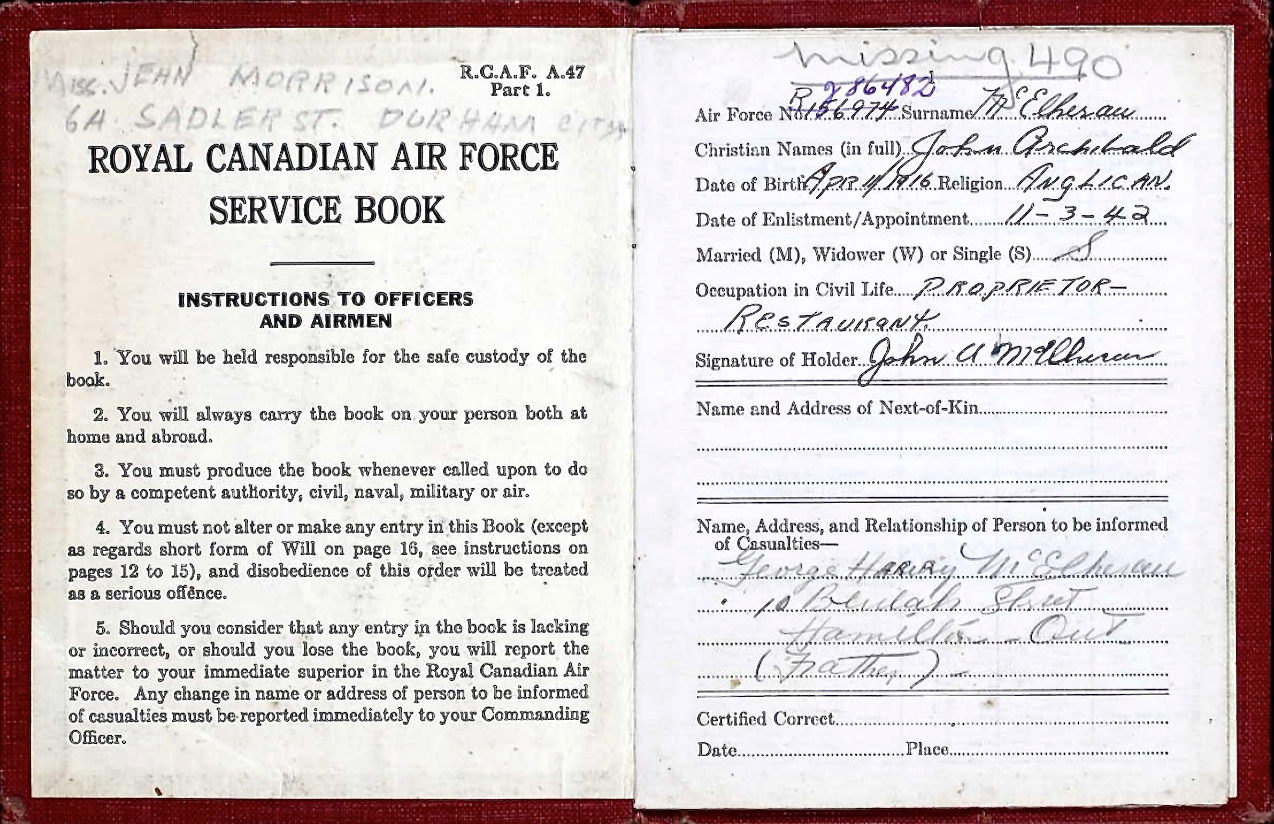 Miss. JEAN MORRISON.
6A SADLER ST. DURHAM CITY
R.C.A.F. A.47
Part 1.
ROYAL CANADIAN AIR FORCE
SERVICE BOOK
INSTRUCTIONS TO OFFICERS
AND AIRMEN
1. You will be held responsible for the safe custody of the
book.
2. You will always carry the book on your person both at
home and abroad.
3. You must produce the book whenever called upon to do
so by a competent authority, civil, naval, military or air.
4. You must not alter or make any entry in this Book (except
as regards short form of Will on page 16, see instructions on
pages 12 to 15), and disobedience of this order will be treated
as a serious offence.
5. Should you consider that any entry in the book is lacking
or incorrect, or should you lose the book, you will report the
matter to your immediate superior in the Royal Canadian Air
Force. Any change in name or address of person to be informed
of casualties must be reported immediately to your Commanding
Officer.
missing 490
J86482
Air Force No R156974 Surname McElheran
Christian Names (in full) John Archibald
Date of Birth Apr 11/1916 Religion ANGLICAN.
Date of Enlistment/Appointment 11-3-42
Married (M), Widower (W) or Single (S) S
Occupation in Civil Life PROPRIETOR-
RESTAURANT.
Signature of Holder John A McElheran
Name and Address of Next-of-Kin
Name, Address, and Relationship of Person to be informed
of Casualties—
George HARRY McElheran
10 Beulah Street
Hamilton - Ont
(Father) -
Certified Correct
Date Place